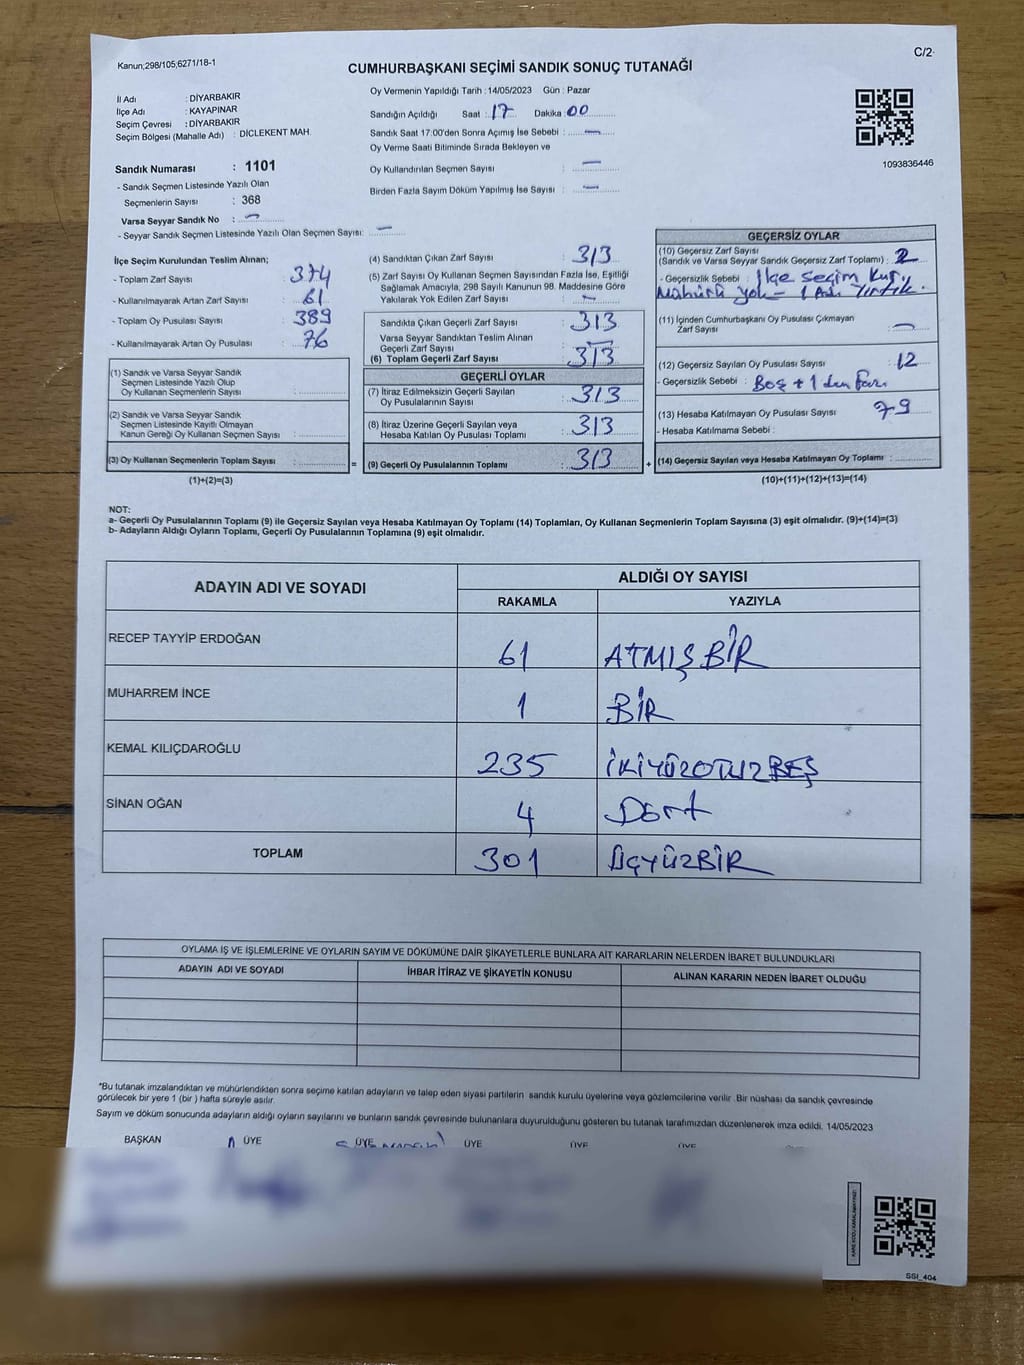 Kanun;298/105;6271/18-1
C/2
CUMHURBAŞKANI SEÇİMİ SANDIK SONUÇ TUTANAĞI
İl Adı : DİYARBAKIR
İlçe Adı : KAYAPINAR
Seçim Çevresi : DİYARBAKIR
Seçim Bölgesi (Mahalle Adı) : DİCLEKENT MAH.
Sandık Numarası : 1101
- Sandık Seçmen Listesinde Yazılı Olan
Seçmenlerin Sayısı : 368
Varsa Seyyar Sandık No : -
- Seyyar Sandık Seçmen Listesinde Yazılı Olan Seçmen Sayısı: -
Oy Vermenin Yapıldığı Tarih : 14/05/2023 Gün : Pazar
Sandığın Açıldığı Saat : 17 Dakika : 00
Sandık Saat 17:00'den Sonra Açımış İse Sebebi : -
Oy Verme Saati Bitiminde Sırada Bekleyen ve
Oy Kullandırılan Seçmen Sayısı : -
Birden Fazla Sayım Döküm Yapılmış İse Sayısı : -
1093836446
İlçe Seçim Kurulundan Teslim Alınan;
- Toplam Zarf Sayısı : 374
- Kullanılmayarak Artan Zarf Sayısı : 61
- Toplam Oy Pusulası Sayısı : 389
- Kullanılmayarak Artan Oy Pusulası : 76
(1) Sandık ve Varsa Seyyar Sandık
Seçmen Listesinde Yazılı Olup
Oy Kullanan Seçmenlerin Sayısı :
(2) Sandık ve Varsa Seyyar Sandık
Seçmen Listesinde Kayıtlı Olmayan
Kanun Gereği Oy Kullanan Seçmen Sayısı :
(3) Oy Kullanan Seçmenlerin Toplam Sayısı :
(1)+(2)=(3)
(4) Sandıktan Çıkan Zarf Sayısı : 313
(5) Zarf Sayısı Oy Kullanan Seçmen Sayısından Fazla İse, Eşitliği
Sağlamak Amacıyla, 298 Sayılı Kanunun 98. Maddesine Göre
Yakılarak Yok Edilen Zarf Sayısı : -
Sandıkta Çıkan Geçerli Zarf Sayısı : 313
Varsa Seyyar Sandıktan Teslim Alınan
Geçerli Zarf Sayısı : -
(6) Toplam Geçerli Zarf Sayısı : 313
GEÇERLİ OYLAR
(7) İtiraz Edilmeksizin Geçerli Sayılan
Oy Pusulalarının Sayısı : 313
(8) İtiraz Üzerine Geçerli Sayılan veya
Hesaba Katılan Oy Pusulası Toplamı : 313
= (9) Geçerli Oy Pusulalarının Toplamı : 313 +
GEÇERSİZ OYLAR
(10) Geçersiz Zarf Sayısı
(Sandık ve Varsa Seyyar Sandık Geçersiz Zarf Toplamı) : 2
- Geçersizlik Sebebi : İlçe Seçim Kur.
Mühürü yok - 1 Adı Yırtık.
(11) İçinden Cumhurbaşkanı Oy Pusulası Çıkmayan
Zarf Sayısı : -
(12) Geçersiz Sayılan Oy Pusulası Sayısı : 12
- Geçersizlik Sebebi : Boş + 1 den fazı
(13) Hesaba Katılmayan Oy Pusulası Sayısı 79
- Hesaba Katılmama Sebebi :
(14) Geçersiz Sayılan veya Hesaba Katılmayan Oy Toplamı :
(10)+(11)+(12)+(13)=(14)
NOT:
a- Geçerli Oy Pusulalarının Toplamı (9) ile Geçersiz Sayılan veya Hesaba Katılmayan Oy Toplamı (14) Toplamları, Oy Kullanan Seçmenlerin Toplam Sayısına (3) eşit olmalıdır. (9)+(14)=(3)
b- Adayların Aldığı Oyların Toplamı, Geçerli Oy Pusulalarının Toplamına (9) eşit olmalıdır.
ADAYIN ADI VE SOYADI
ALDIĞI OY SAYISI
RAKAMLA YAZIYLA
RECEP TAYYİP ERDOĞAN 61 ATMIŞBİR
MUHARREM İNCE 1 BİR
KEMAL KILIÇDAROĞLU 235 İKİYÜZOTUZBEŞ
SİNAN OĞAN 4 Dört
TOPLAM 301 ÜÇYÜZBİR
OYLAMA İŞ VE İŞLEMLERİNE VE OYLARIN SAYIM VE DÖKÜMÜNE DAİR ŞİKAYETLERLE BUNLARA AİT KARARLARIN NELERDEN İBARET BULUNDUKLARI
ADAYIN ADI VE SOYADI İHBAR İTİRAZ VE ŞİKAYETİN KONUSU ALINAN KARARIN NEDEN İBARET OLDUĞU
*Bu tutanak imzalandıktan ve mühürlendikten sonra seçime katılan adayların ve talep eden siyasi partilerin sandık kurulu üyelerine veya gözlemcilerine verilir .Bir nüshası da sandık çevresinde
görülecek bir yere 1 (bir ) hafta süreyle asılır.
Sayım ve döküm sonucunda adayların aldığı oyların sayılarını ve bunların sandık çevresinde bulunanlara duyurulduğunu gösteren bu tutanak tarafımızdan düzenlenerek imza edildi. 14/05/2023
BAŞKAN ÜYE ÜYE ÜYE ÜYE ÜYE
SSI_404